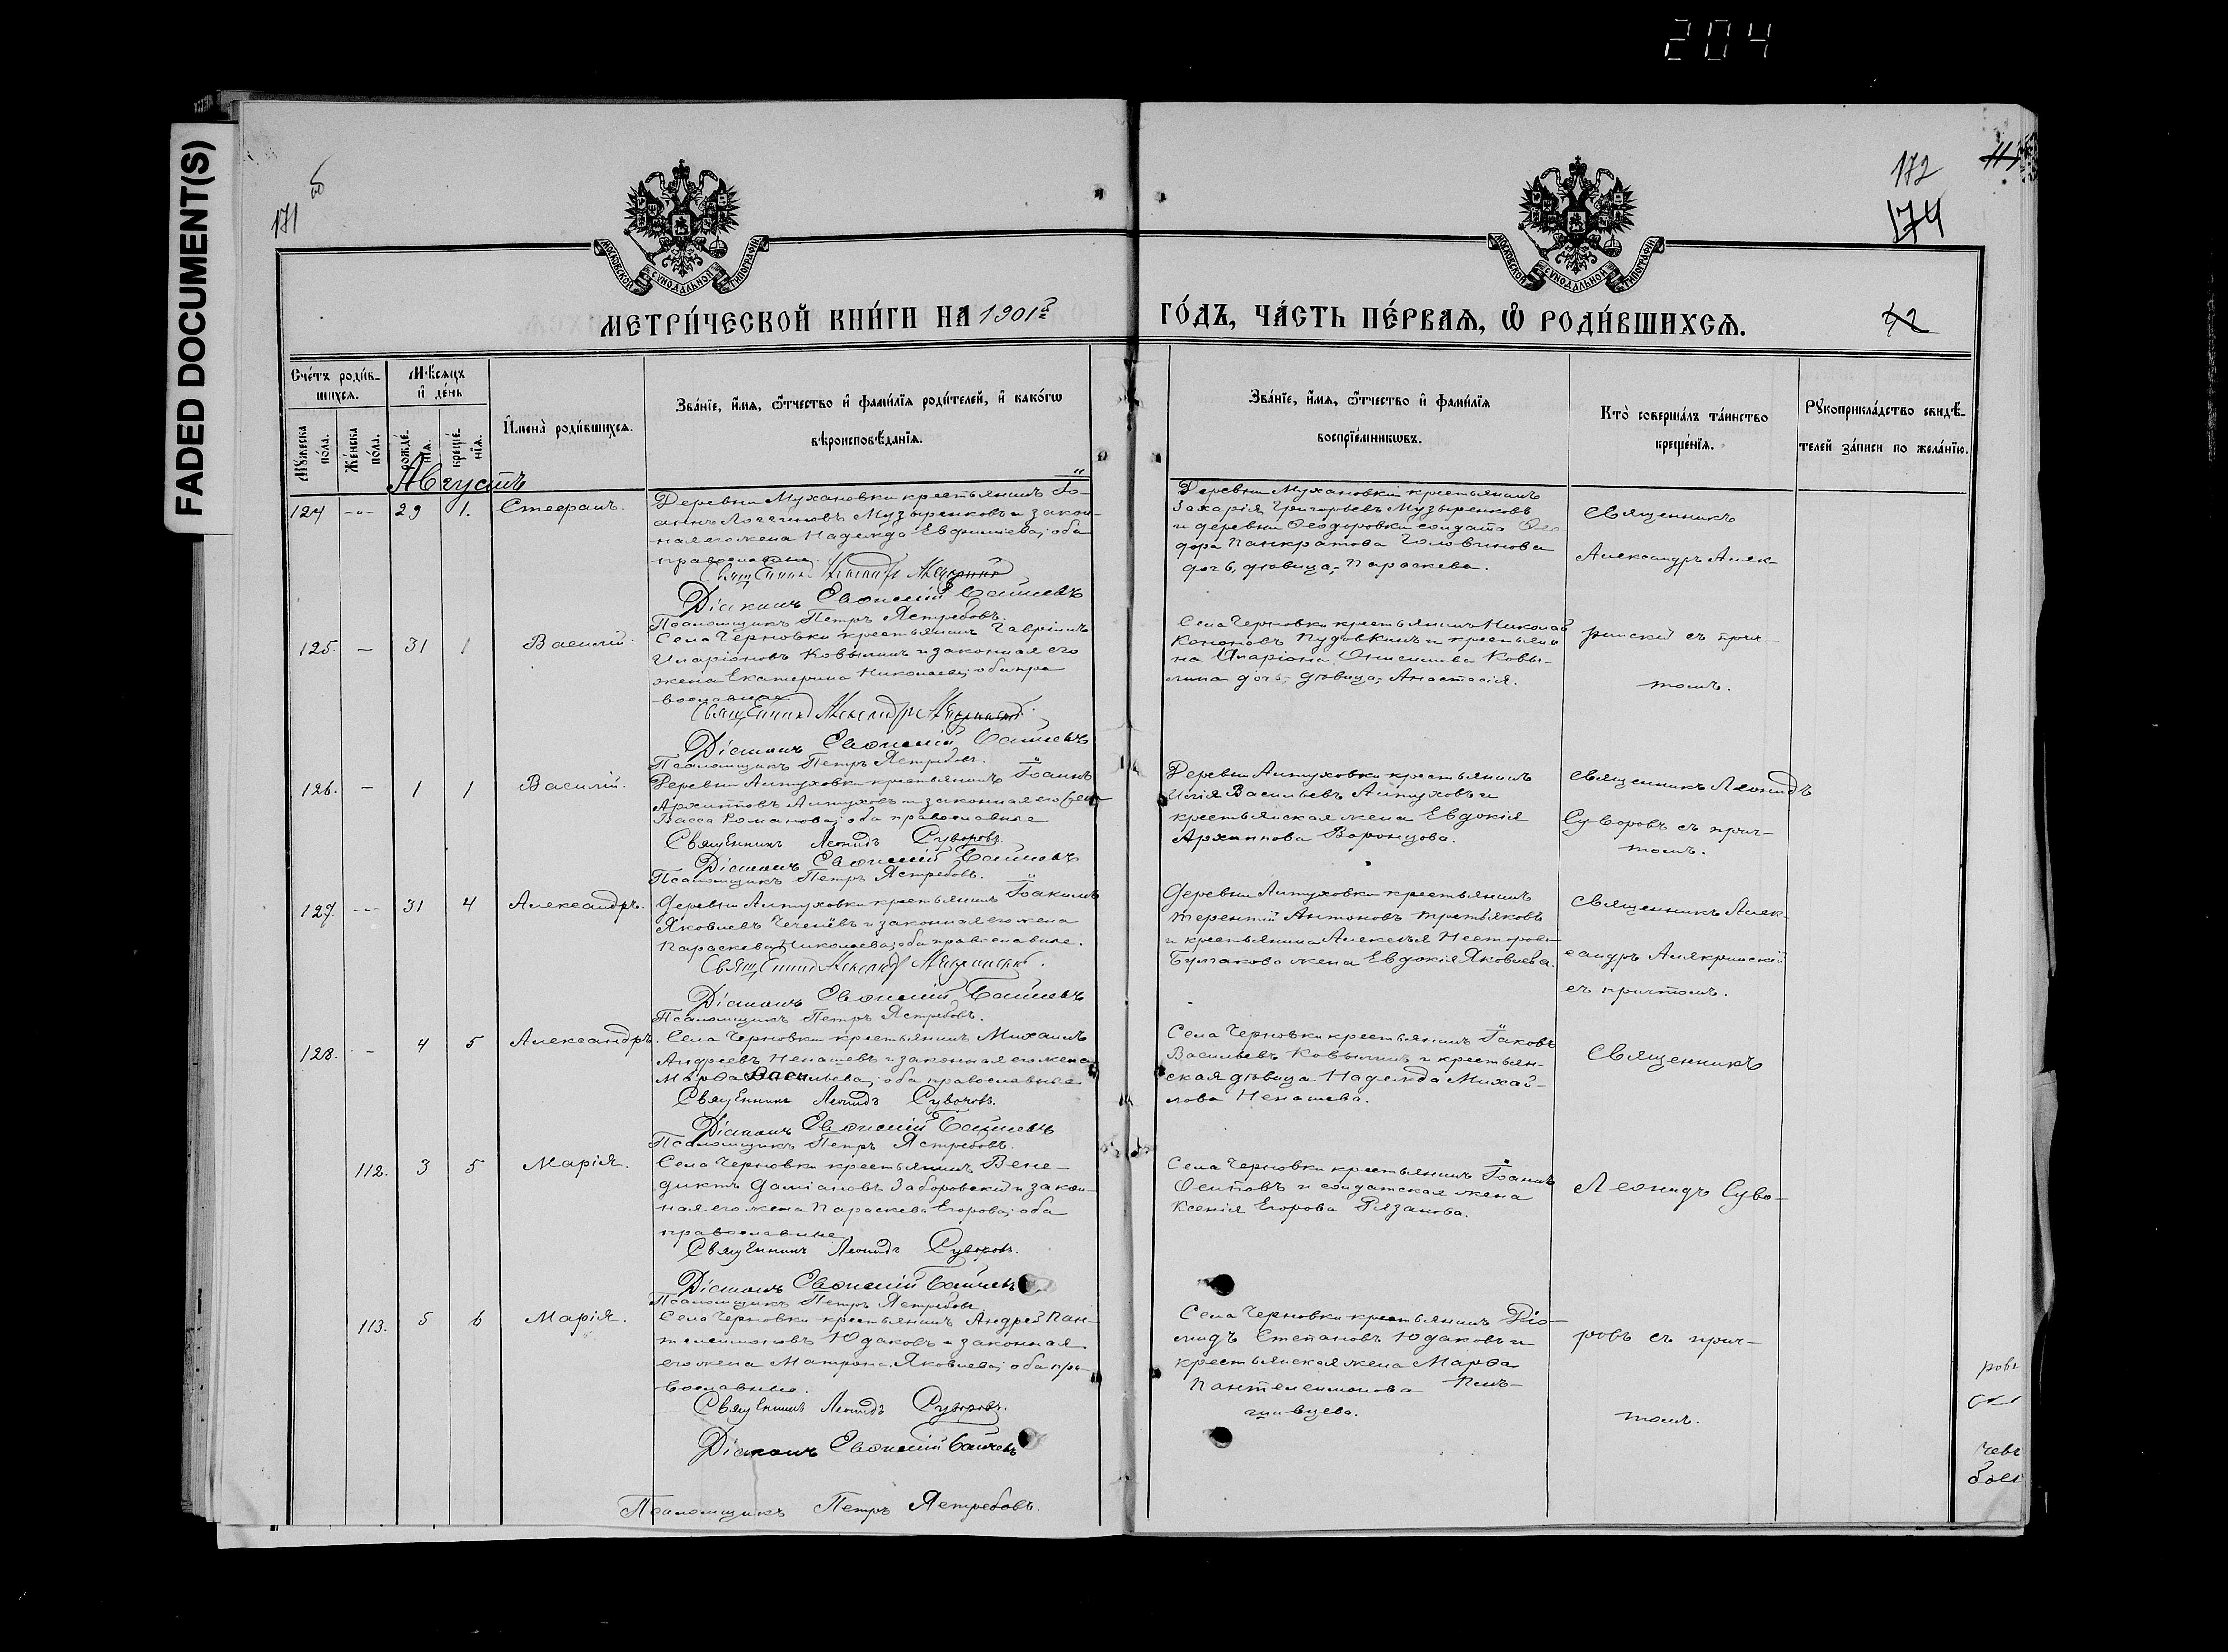 204
FADED DOCUMENT(S)
171 об
172
174
МОСКОВСКОЙ СѴНОДАЛЬНОЙ ТИПОГРАФІИ
МОСКОВСКОЙ СѴНОДАЛЬНОЙ ТИПОГРАФІИ
МЕТРИ́ЧЕСКОЙ КНИ́ГИ НА 1901й ГО́ДЪ, ЧА́СТЬ ПЕ́РВАѦ, Ѡ҆ РОДИ́ВШИХСѦ.
42
Сче́тъ роди́в-
шихсѧ.
Мѣ́сѧцъ
и҆ де́нь
И҆мена̀ роди́вшихсѧ.
Зва́нїе, и҆́мѧ, ѻ҆́тчество и҆ фами́лїѧ роди́телей, и҆ како́гѡ
вѣроисповѣ́данїѧ.
Зва́нїе, и҆́мѧ, ѻ҆́тчество и҆ фами́лїѧ
воспрїе́мникѡвъ.
Кто̀ соверша́лъ та́инство
креще́нїѧ.
Рꙋкоприкла́дство свидѣ́-
телей за́писи по жела́нїю.
Мꙋ́жеска
по́ла.
Же́нска
по́ла.
рожде́-
нїѧ.
креще́-
нїѧ.
Августъ
124 -"- 29 1. Стефанъ.
Деревни Мухановки крестьянинъ Іо-
аннъ Логгиновъ Музыренковъ и закон-
ная его жена Надежда Евфиміева; оба
православные.
Священникъ Александръ Алякринскій
Діаконъ Евѳимій
Псаломщикъ Петръ Ястребовъ.
Деревни Мухановки крестьянинъ
Захарія Григорьевъ Музыренковъ
и деревни Ѳеодоровки солдата Ѳео-
дора Панкратова Головинова
дочь, дѣвица, Параскева.
Священникъ
Александръ Аляк-
125. - 31 1 Василій.
Села Черновки крестьянинъ Гавріилъ
Иларіоновъ Ковылинъ и законная его
жена Екатерина Николаева; оба пра
вославные.
Священникъ Александръ Алякринскій.
Діаконъ Евѳимій
Псаломщикъ Петръ Ястребовъ.
Села Черновки крестьянинъ Николай
Кононовъ Пудовкинъ и крестьяни
на Иларіона Онисимова Ковы-
лина дочь, дѣвица, Анастасія.
ринскій съ прич-
томъ.
126. - 1 1 Василій.
Деревни Алтуховки крестьянинъ Іоаннъ
Архиповъ Алтуховъ и законная его жена
Васса Романова; оба православные
Священникъ Леонидъ Суворовъ.
Діаконъ Евѳимій
Псаломщикъ Петръ Ястребовъ.
Деревни Алтуховки крестьянинъ
Илія Васильевъ Алтуховъ и
крестьянская жена Евдокія
Архипова Воронцова.
Священникъ Леонидъ
Суворовъ съ прич-
томъ.
127. -"- 31 4 Александръ.
Деревни Алтуховки крестьянинъ Іоакимъ
Яковлевъ Чеченёвъ и законная его жена
Параскева Николаева; оба православные.
Священникъ Александръ Алякринскій.
Діаконъ Евѳимій
Псаломщикъ Петръ Ястребовъ.
Деревни Алтуховки крестьянинъ
Терентій Антоновъ Третьяковъ
и крестьянина Алексѣя Несторова
Булгакова жена Евдокія Яковлева.
Священникъ Алек-
сандръ Алякринскій
съ причтомъ.
128. - 4 5 Александръ.
Села Черновки крестьянинъ Михаилъ
Андреевъ Ненашевъ и законная его жена
Марѳа Васильева; оба православные
Священникъ Леонидъ Суворовъ.
Діаконъ Евѳимій
Псаломщикъ Петръ Ястребовъ.
Села Черновки крестьянинъ Іаковъ
Васильевъ Ковылинъ и крестьян-
ская дѣвица Надежда Михай-
лова Ненашева.
Священникъ
112. 3 5 Марія.
Села Черновки крестьянинъ Вене-
диктъ Даміановъ Заборовскій и закон-
ная его жена Параскева Егорова; оба
православные
Священникъ Леонидъ Суворовъ.
Діаконъ Евѳимій
Псаломщикъ Петръ Ястребовъ
Села Черновки крестьянинъ Іоаннъ
Осиповъ и солдатская жена
Ксенія Егорова Рязанова.
Леонидъ Суво-
113. 5 6 Марія.
Села Черновки крестьянинъ Андрей Пан-
телеимоновъ Юдаковъ и законная
его жена Матрона Яковлева; оба пра-
вославные.
Священникъ Леонидъ Суворовъ.
Діаконъ Евѳимій
Псаломщикъ Петръ Ястребовъ.
Села Черновки крестьянинъ Діо-
мидъ Степановъ Юдаковъ и
крестьянская жена Марѳа
Пантелеимонова
ровъ съ прич-
томъ.